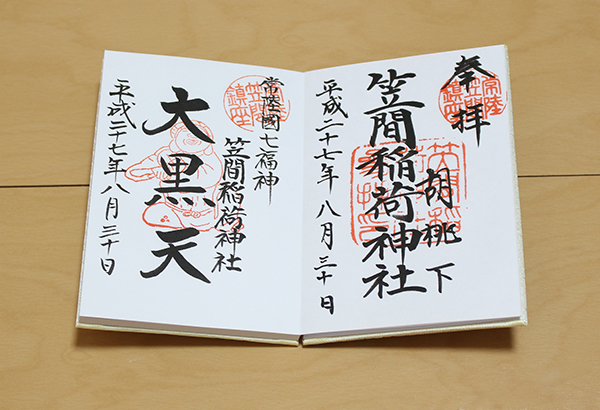 奉拝
胡桃下
笠間稲荷神社
平成二十七年八月三十日
常陸國七福神
笠間稲荷神社
大黒天
平成二十七年八月三十日
常陸
笠間
鎮座